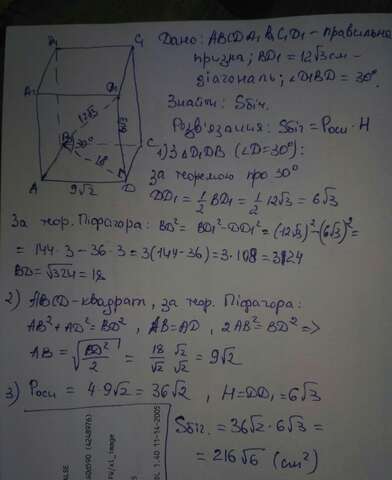 B₁
C₁
A₁
D₁
12√3
6√3
B
30°
C
18
A
D
9√2
Дано: ABCDA₁B₁C₁D₁ - правильна
призма; BD₁ = 12√3 см -
діагональ; ∠D₁BD = 30°.
Знайти: Sбіч.
Розв'язання: Sбіч = Pосн · H
1) З △D₁DB (∠D=30°):
за теоремою про 30°
DD₁ = 1/2 BD₁ = 1/2 12√3 = 6√3
За теор. Піфагора: BD² = BD₁² - DD₁² = (12√3)² - (6√3)² =
= 144·3 - 36·3 = 3(144-36) = 3·108 = 324
BD = √324 = 18
2) ABCD - квадрат, за теор. Піфагора:
AB² + AD² = BD², AB = AD, 2AB² = BD² =>
AB = √(BD²/2) = 18/√2 √2/√2 = 9√2
3) Pосн = 4·9√2 = 36√2, H = DD₁ = 6√3
Sбіч. = 36√2 · 6√3 =
= 216√6 (см²)